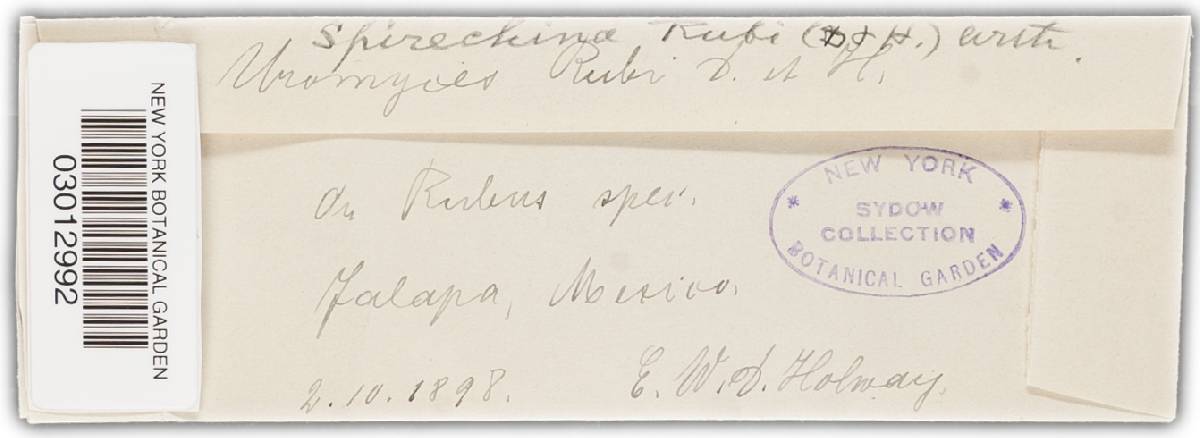 Spirechina Rubi (D + H.) Arth.
Uromyces Rubi D. et H.
on Rubus spec.
Jalapa, Mexico.
2.10.1898.
E. W. D. Holway.
NEW YORK
SYDOW
COLLECTION
BOTANICAL GARDEN
NEW YORK BOTANICAL GARDEN
03012992